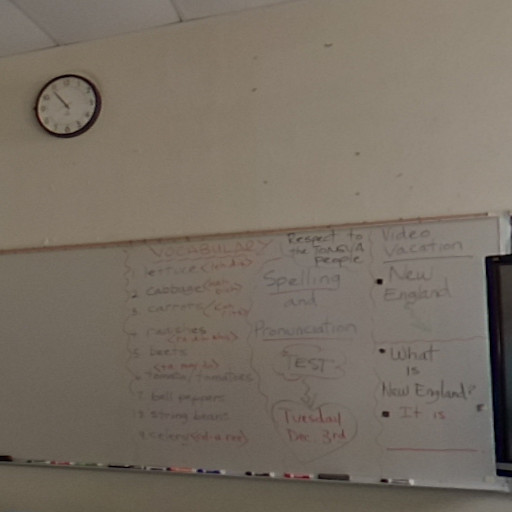 VOCABULARY
1. lettuce
2. cabbage
3. carrots
4. radishes
5. beets
6. tomato/tomatoes
7. bell peppers
8. string beans
9. celery
Respect to
the TONGVA
people
Spelling
and
Pronunciation
TEST
Tuesday
Dec. 3rd
Video
Vacation
• New
England
• What
is
New England?
• It is